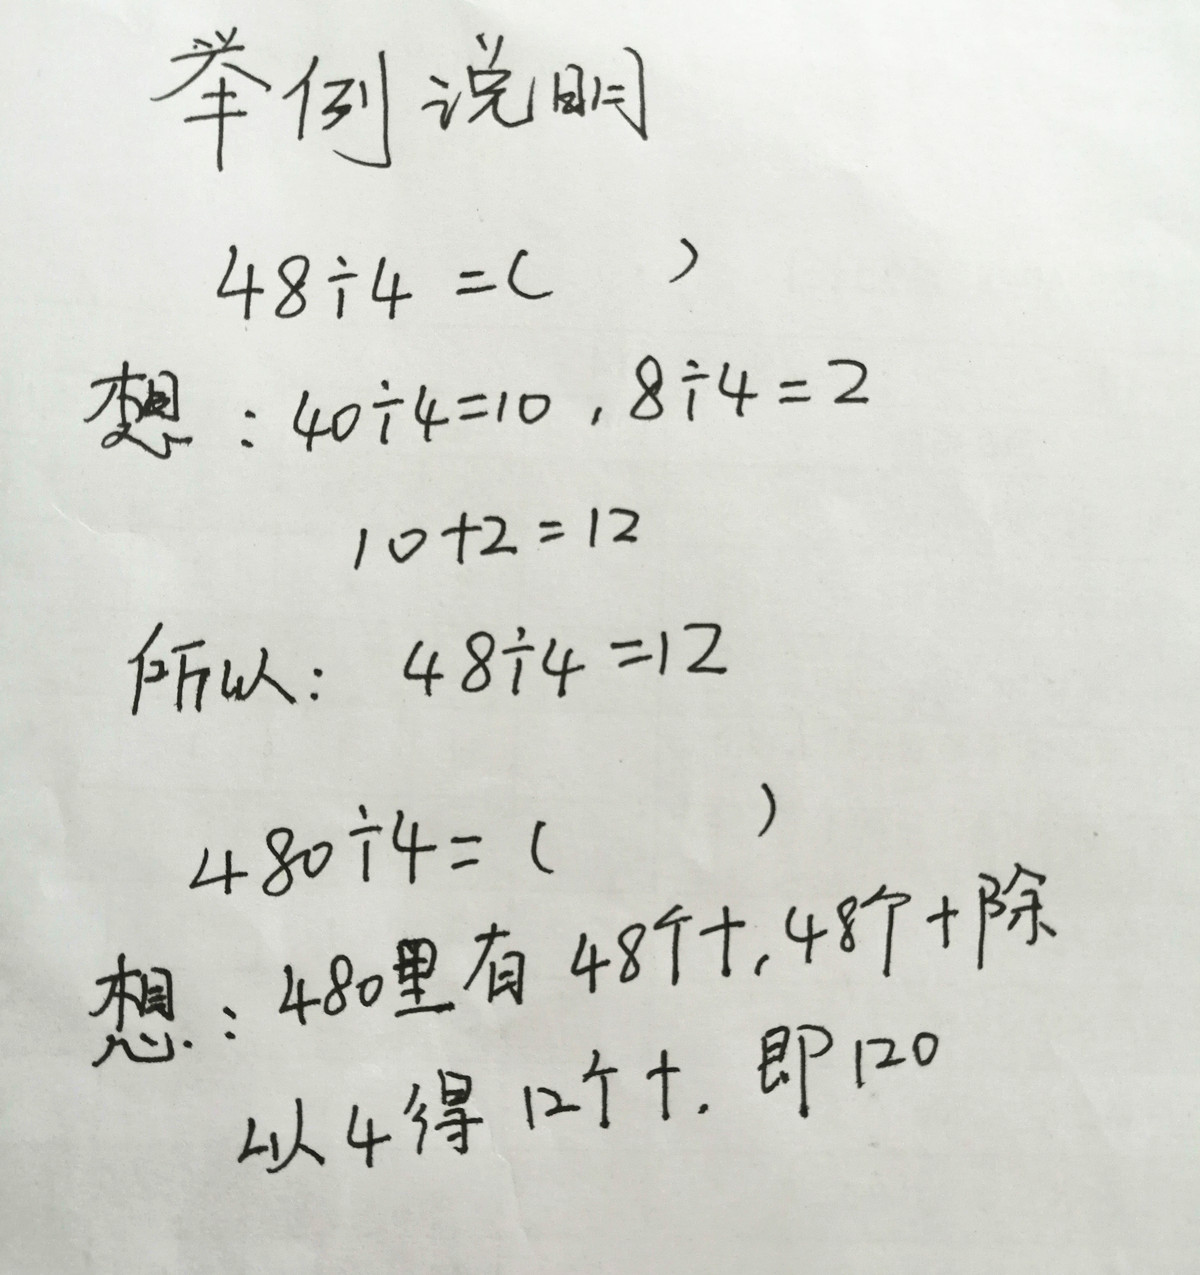 举例说明
48÷4=( )
想:40÷4=10,8÷4=2
10+2=12
所以:48÷4=12
480÷4=( )
想:480里有48个十,48个十除
以4得12个十.即120